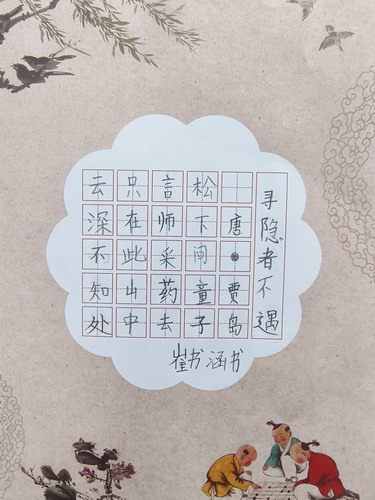 寻隐者不遇
唐·贾岛
松下问童子
言师采药去
只在此山中
云深不知处
崔书涵书